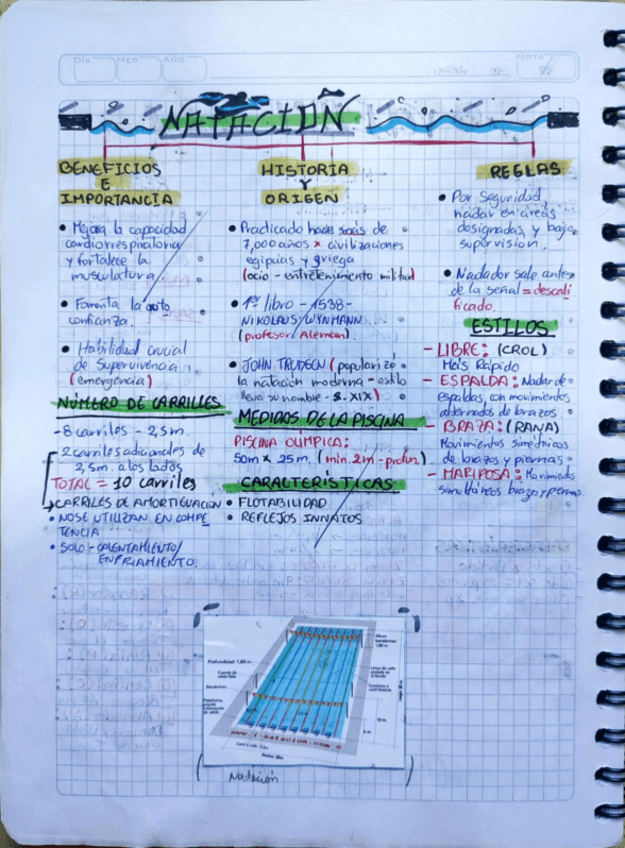 DÍA
MES
AÑO
NOTA
NATACIÓN
BENEFICIOS
E
IMPORTANCIA
• Mejora la capacidad
cardiorrespiratoria
y fortalece la
musculatura
• Fomenta la auto
confianza.
• Habilidad crucial
de Supervivencia
(emergencia)
NÚMERO DE CARRILES
- 8 carriles - 2,5m.
- 2 carriles adicionales de
2,5m. a los lados
TOTAL = 10 carriles
CARRILES DE AMORTIGUACIÓN
• NO SE UTILIZAN EN COMPE
TENCIA
• SOLO - CALENTAMIENTO/
ENFRIAMIENTO.
HISTORIA
Y
ORIGEN
• Practicado hace más de
7,000 años x civilizaciones
egipcias y griega
(ocio - entretenimiento militar)
• 1er libro - 1538 -
NIKOLAUS WYNMANN
(profesor Alemán).
• JOHN TRUDGEN (popularizó
la natación moderna - estilo
lleva su nombre - S. XIX)
MEDIDAS DE LA PISCINA
PISCINA OLÍMPICA:
50m x 25m. (min. 2m - profun.)
CARACTERÍSTICAS
• FLOTABILIDAD
• REFLEJOS INNATOS
REGLAS
• Por seguridad
nadar en áreas
designadas, y bajo
supervision.
• Nadador sale antes
de la señal = descali
ficado.
ESTILOS
- LIBRE: (CROL)
Más Rápido
- ESPALDA: Nadar de
espaldas, con movimientos
alternados de brazos
- BRAZA: (RANA)
Movimientos simétricos
de brazos y piernas
- MARIPOSA: Movimientos
simultáneos brazo y piernas
Profundidad: 1,80 m.
Banderines
10 m.
5 m.
Natación